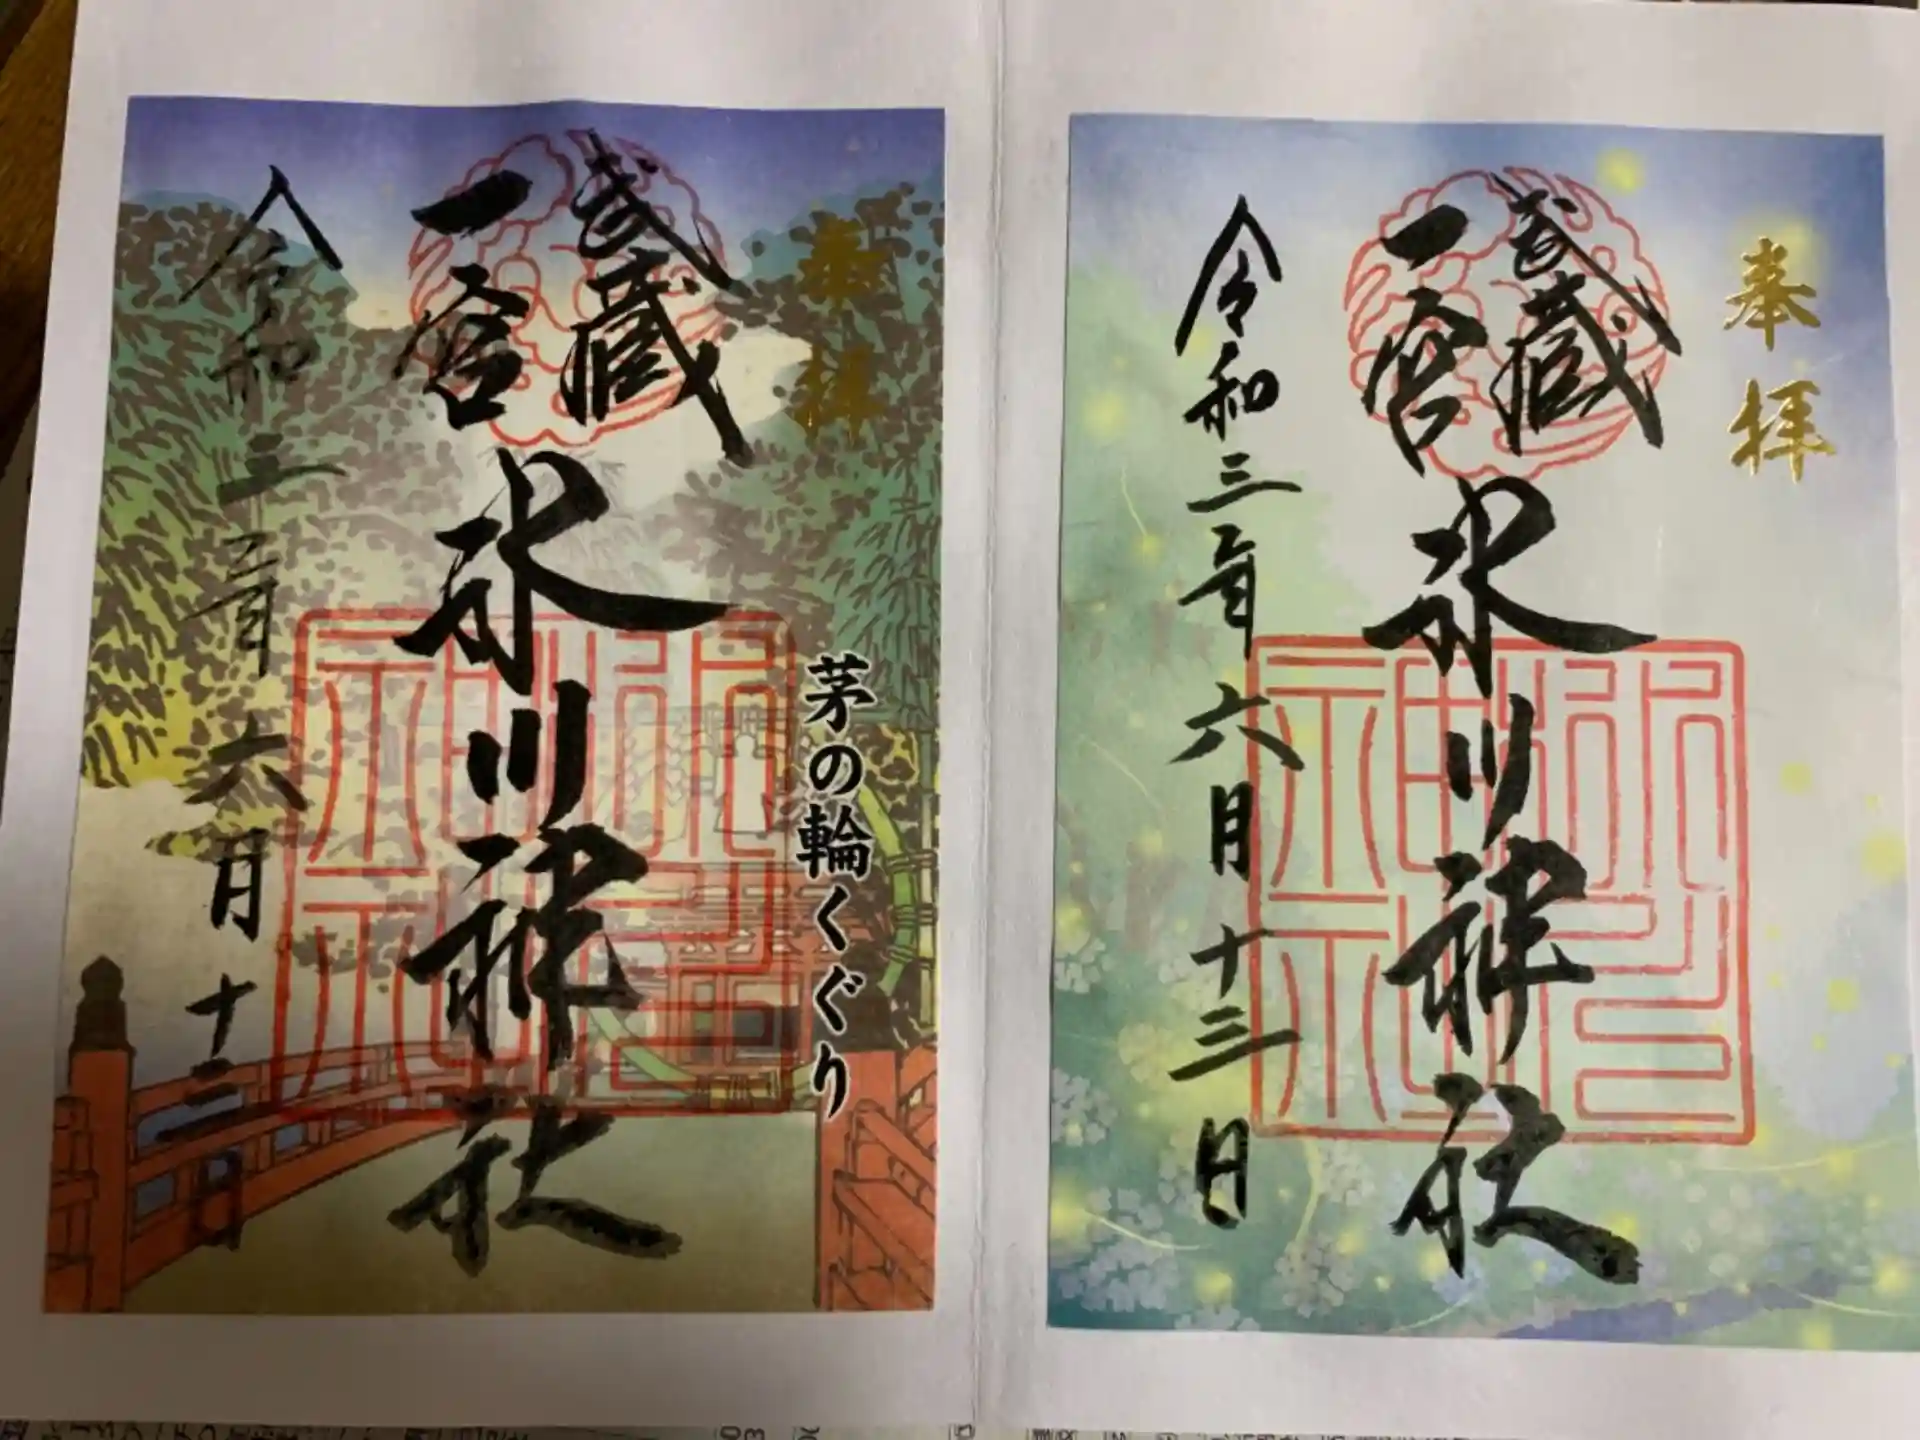 奉拝
武蔵
一宮
氷川神社
茅の輪くぐり
令和三年六月十三日
奉拝
武蔵
一宮
氷川神社
令和三年六月十三日
氷川神社
氷川神社